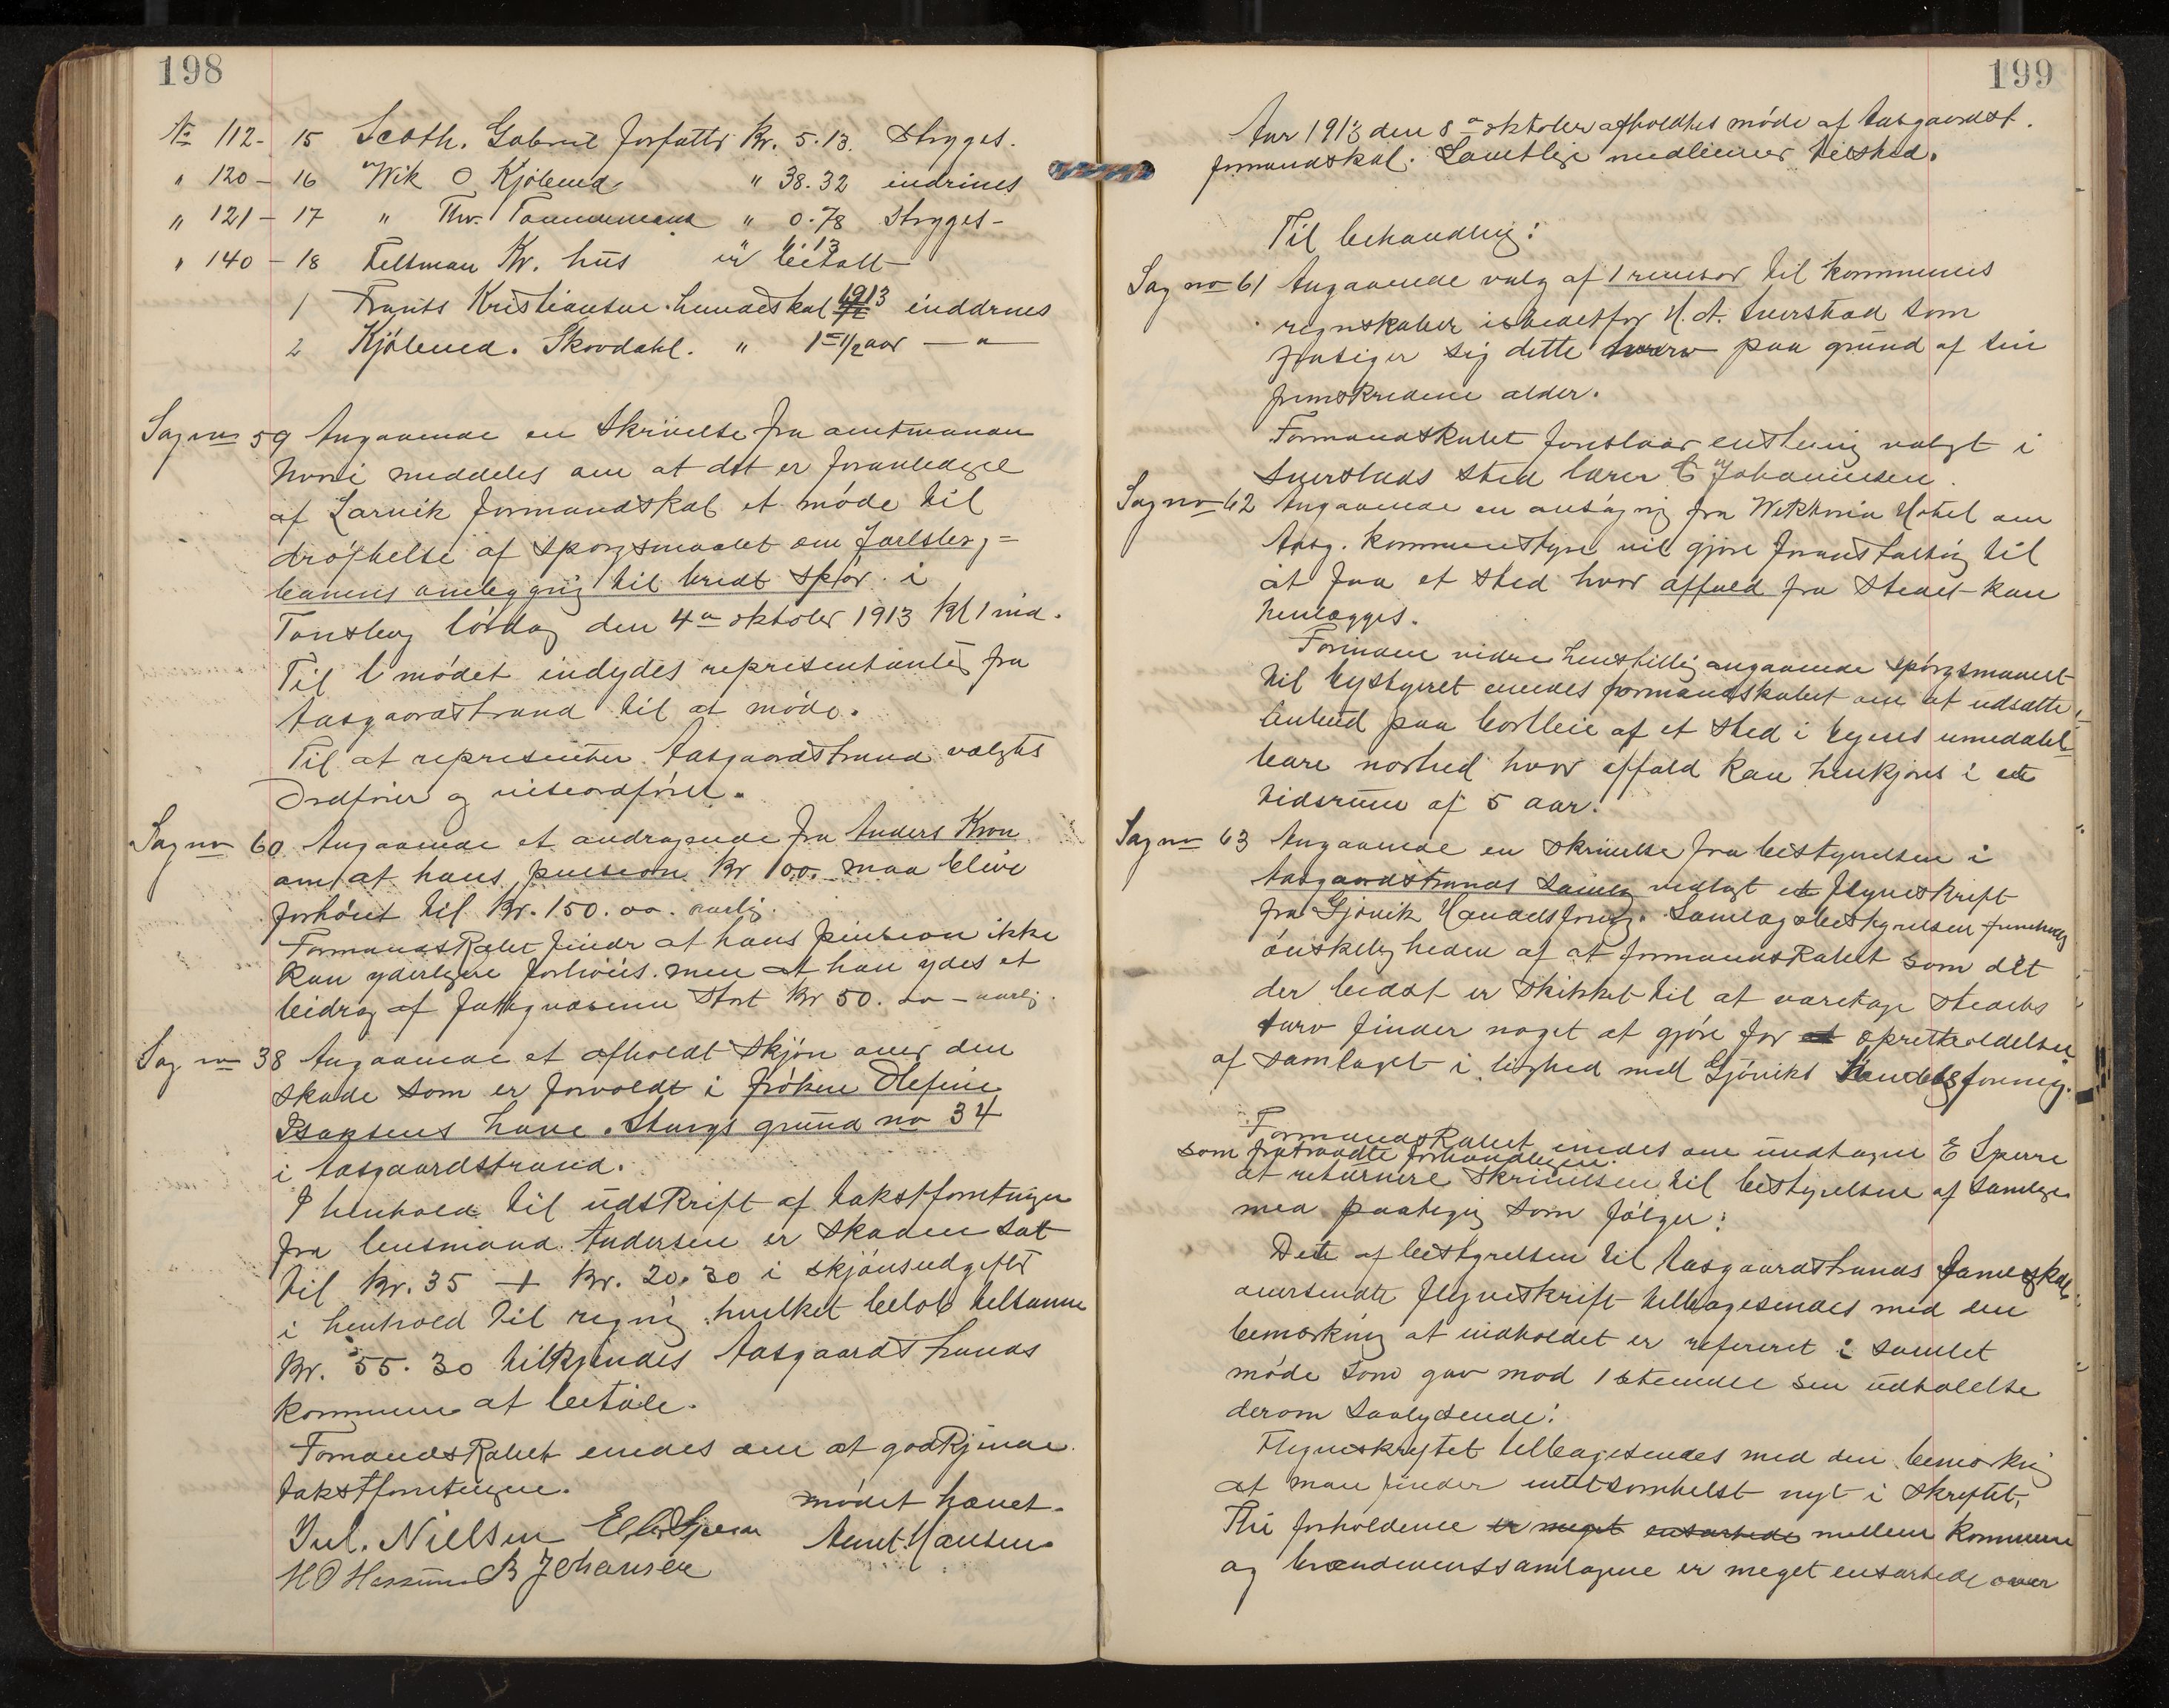 198
No 112 - 15 Scoth. Gabriel forfatter Kr. 5.13. Stryges.
" 120 - 16 Wik O Kjøbmd " 38.32 indrives
" 121 - 17 " Thv. Tømmermand " 0.78 Stryges -
" 140 - 18 Feltman Kr. hus " 6.13 er betalt
1 Frants Kristiansen. hundeskat 1913 inddrives
2 Kjøbmd. Skovdahl. " 1 1/2 aar — " —
Sag no 59 Angaaende en Skrivelse fra amtmanden
hvori meddeles om at det er foranlediget
af Larvik formandskab et møde til
drøftelse af spørgsmaalet om Jarlsberg=
banens ombygging til bredt spor i
Tønsberg lørdag den 4de oktober 1913 Kl 1 md.
Til mødet indydes representanter fra
Aasgaardstrand til at møde.
Til at representere Aasgaardstrand valgtes
Ordfører og viseordfører.
Sag no 60 Angaaende et andragende fra Anders Kron
om at hans pension Kr 100. maa blive
forhøiet til Kr. 150.00. aarlig.
Formandskabet finder at hans pension ikke
kan yderligere forhøies. men at han ydes et
bidrag af fattigvæsenet stort Kr 50.00 - aarlig.
Sag no 38 Angaaende et afholdt skjøn over den
skade som er forvoldt i frøken Olefine
Isaksens have. Stangs grund no 34
i Aasgaardstrand.
I henhold til udskrift af takstforretningen
fra lensmand Andersen er skaden sat
til Kr. 35 + Kr. 20.30 i skjønsudgifter
i henhold til regning hvilket beløb tilsammen
Kr. 55.30 tilkjendes Aasgaardstrands
kommune at betale.
Formandskabet enedes om at godkjende
takstforretningen.
mødet hævet.
Jul. Nielsen E Sperre Aunt. Hansen
H O Hassum B Johansen
199
Aar 1913 den 8de oktober afholdtes møde af Aasgaardst.
formandskab. Samtlige medlemmer tilstede.
Til behandling:
Sag no 61 Angaaende valg af 1 revisor til kommunens
regnskaber istedetfor H. A. Sverstad som
frasiger sig dette hverv paa grund af sin
fremskredne alder.
Formandskabet foreslaar enstemig valgt i
Sverstads sted lærer C Johannesen.
Sag no 62 Angaaende en ansøgnig fra Wiktoria Hotel om
Aasg. kommunestyre vil gjøre foranstaltnig til
at faa et sted hvor affald fra stedet kan
henlægges.
Formanden vidre henstillig angaaende spørgsmaalet
til bystyret enedes formandskabet om at udsætte
anbud paa bortleie af et sted i byens umiddel
bare nærhed hvor affald kan henkjøres i et
tidsrum af 5 aar.
Sag no 63 Angaaende en skrivelse fra bestyrelsen i
Aasgaardstrands samlag vedlagt et flyveskrift
fra Gjøvik Handelsforenig. Samlagsbestyrelsen fremholdt
ønskeligheden af at formandskabet som det
der bedst er skikket til at varetage stedets
tarv finder noget at gjøre for at opretholdelsen
af samlaget i lighed med Gjøviks Handelsforenig.
Formandskabet enedes om undtagen E Sperre
som fratraadte forhandlingen
at returnere skrivelsen til bestyrelsen af samlaget
med paategnig som følger:
Dette af bestyrelsen til Aasgaardstrands formandskab
oversendte flyveskrift tilbagesendes med den
bemærknig at indholdet er refereret i samlet
møde som gav mod 1 stemme sin udtalelse
derom saalydende:
Flyveskriftet tilbagesendes med den bemærknig
at man finder intetsomhelst nyt i skriftet,
Thi forholdene er meget ensartede mellem kommune
og brændevinssamlagene er meget ensartede over